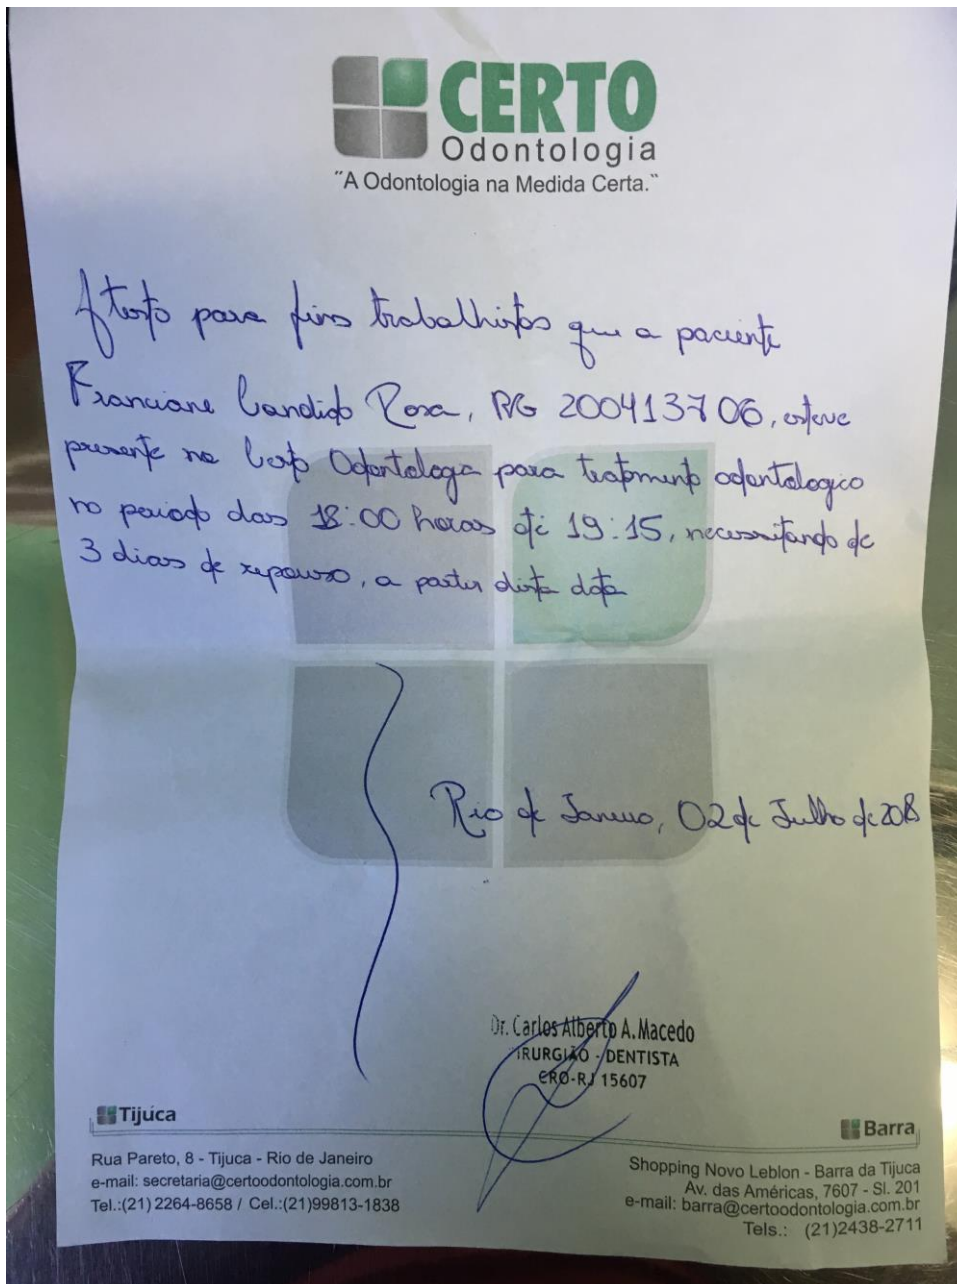 CERTO
Odontologia
"A Odontologia na Medida Certa."
Atesto para fins trabalhistas que a paciente
Franciane Candido Rosa, RG 200413706, esteve
presente na Certo Odontologia para tratamento odontologico
no periodo das 18:00 horas até 19:15, necessitando de
3 dias de repouso, a partir desta data
Rio de Janeiro, 02 de Julho de 2018
Dr. Carlos Alberto A. Macedo
IRURGIÃO - DENTISTA
CRO-RJ 15607
Tijuca
Rua Pareto, 8 - Tijuca - Rio de Janeiro
e-mail: secretaria@certoodontologia.com.br
Tel.:(21) 2264-8658 / Cel.:(21)99813-1838
Barra
Shopping Novo Leblon - Barra da Tijuca
Av. das Américas, 7607 - Sl. 201
e-mail: barra@certoodontologia.com.br
Tels.: (21)2438-2711